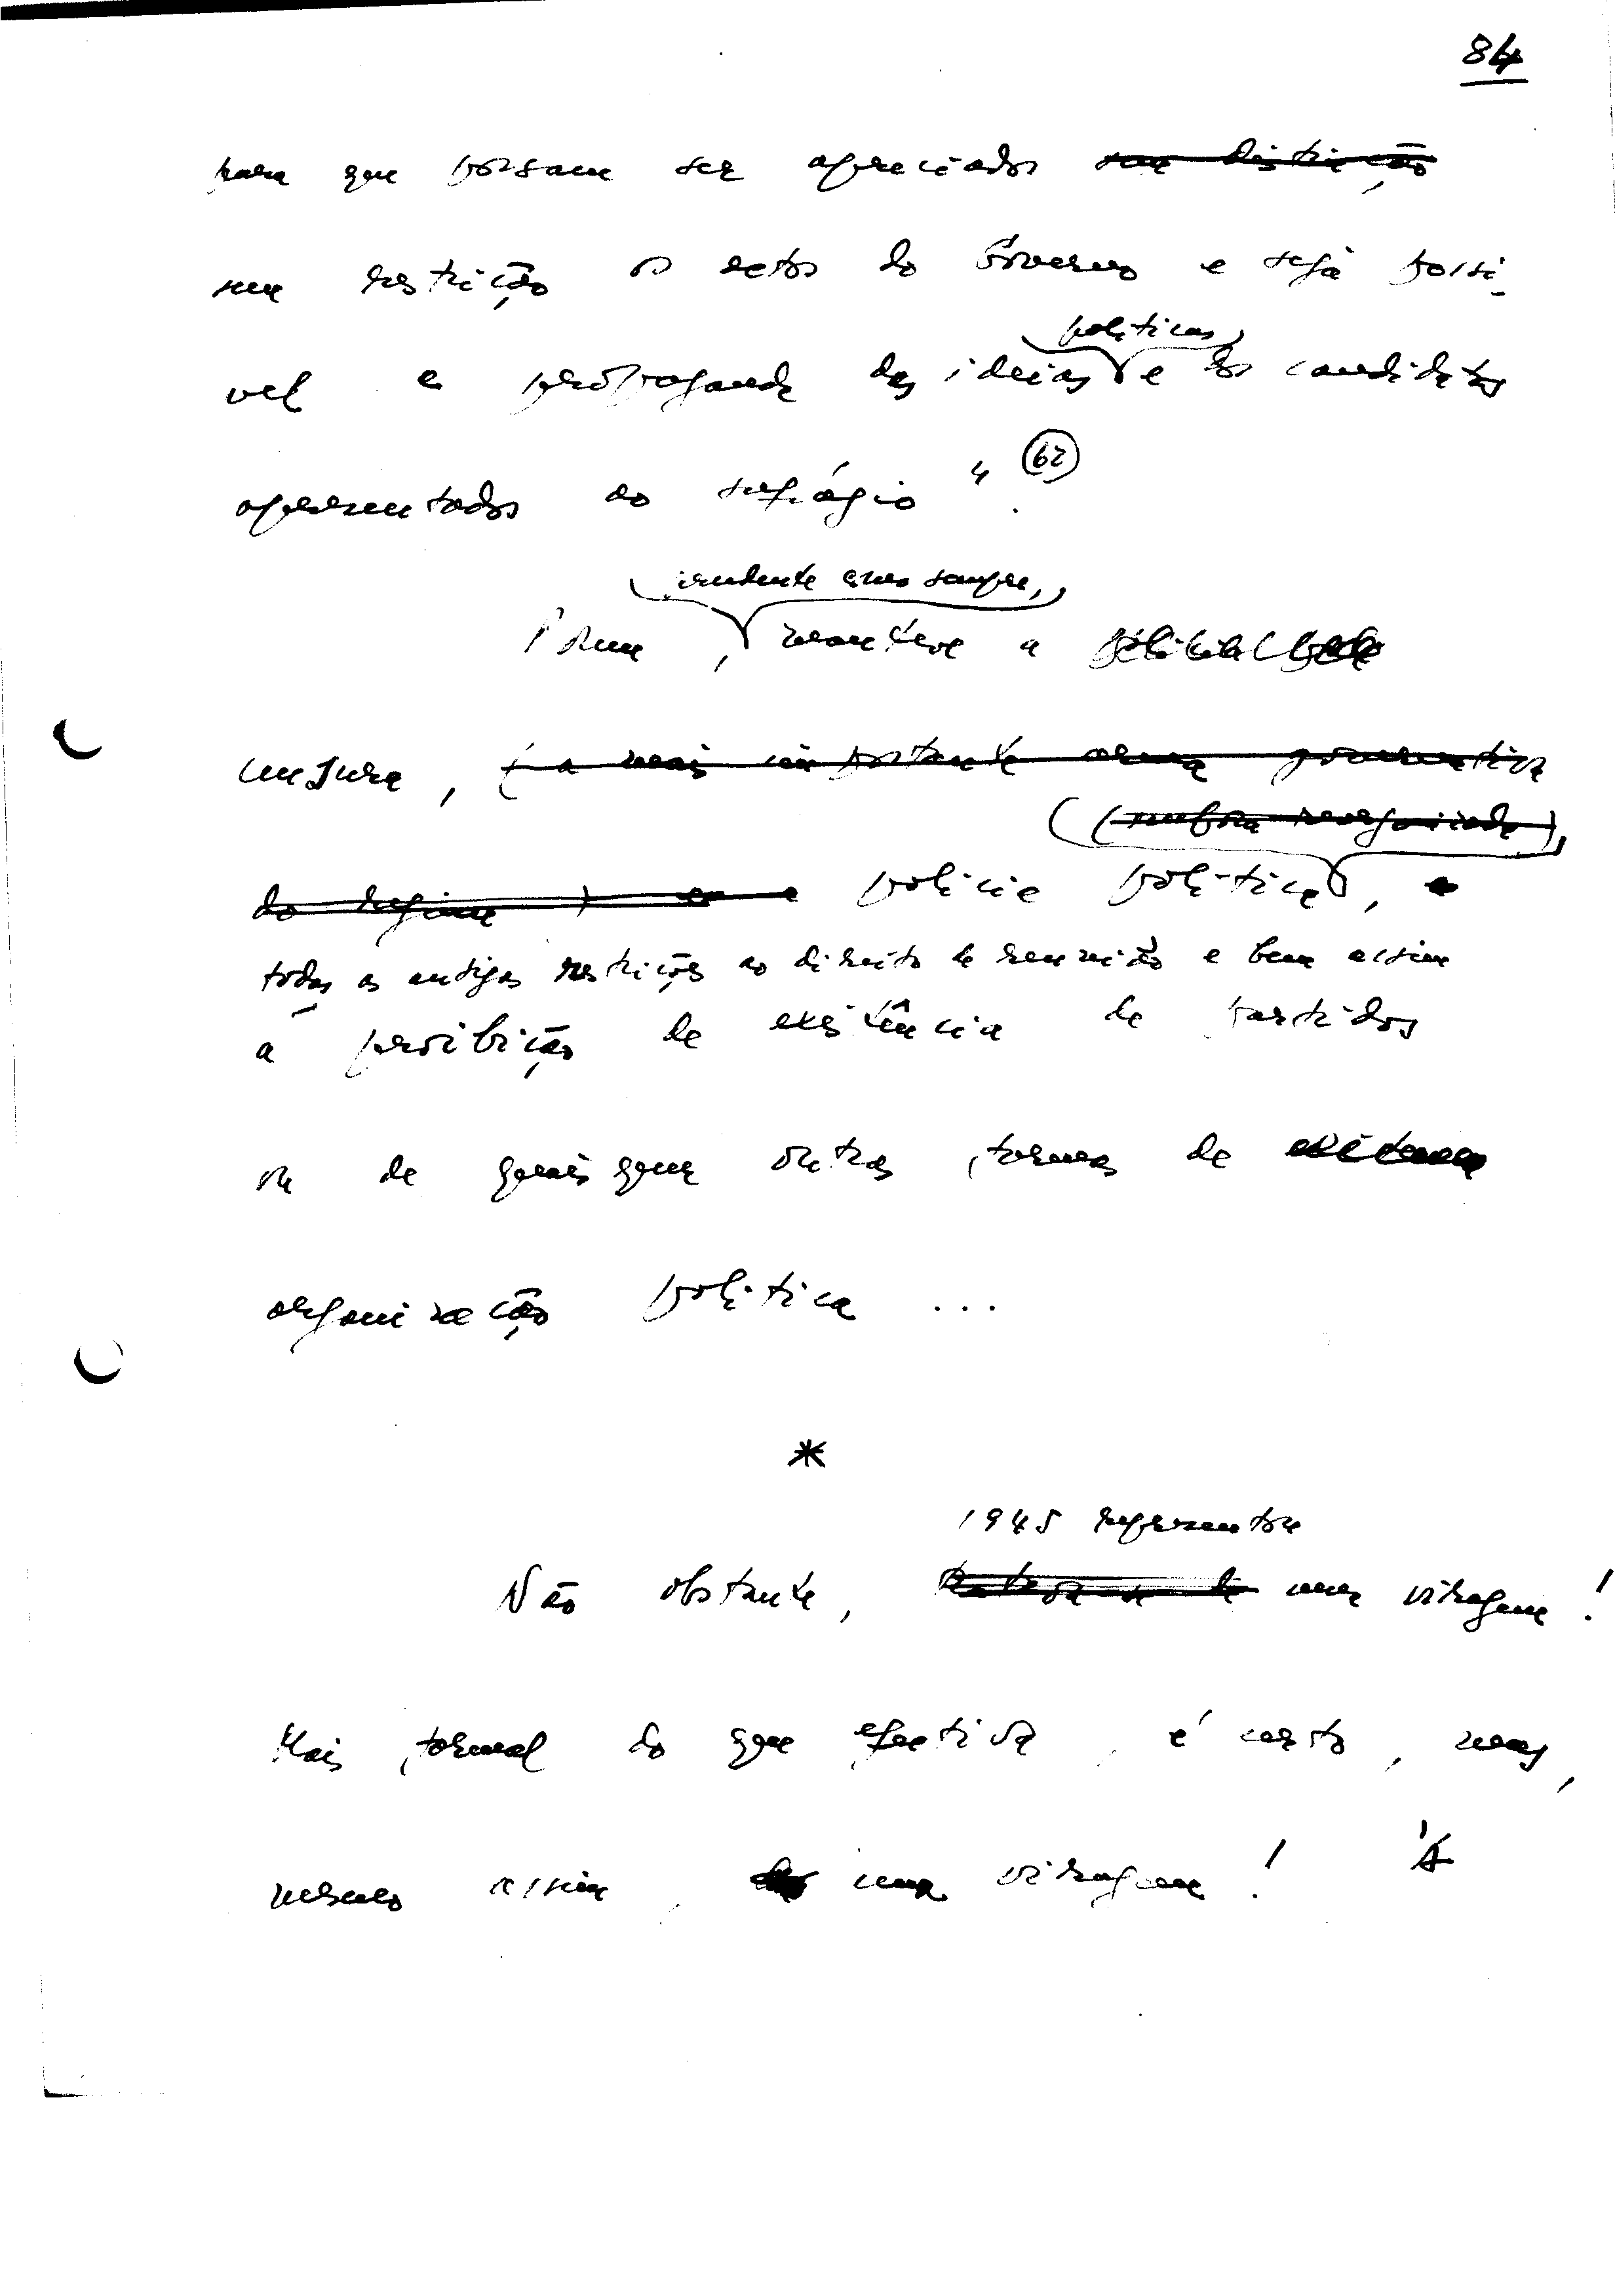 84
para que possam ser apreciados sem distinção
sem restrição os actos do Governo e seja possí-
vel a propaganda das ideias políticas e dos candidatos
apresentados ao sufrágio" (62).
Porém, prudente como sempre, manteve a
censura, (a mais importante arma preventiva
do regime) e a polícia política,
todas as antigas restrições ao direito de reunião e bem assim
a proibição de existência de partidos
ou de quaisquer outras formas de
organização política ...
*
1945 representou
Não obstante, uma viragem!
Mais formal do que efectiva, é certo, mas,
mesmo assim, uma viragem!